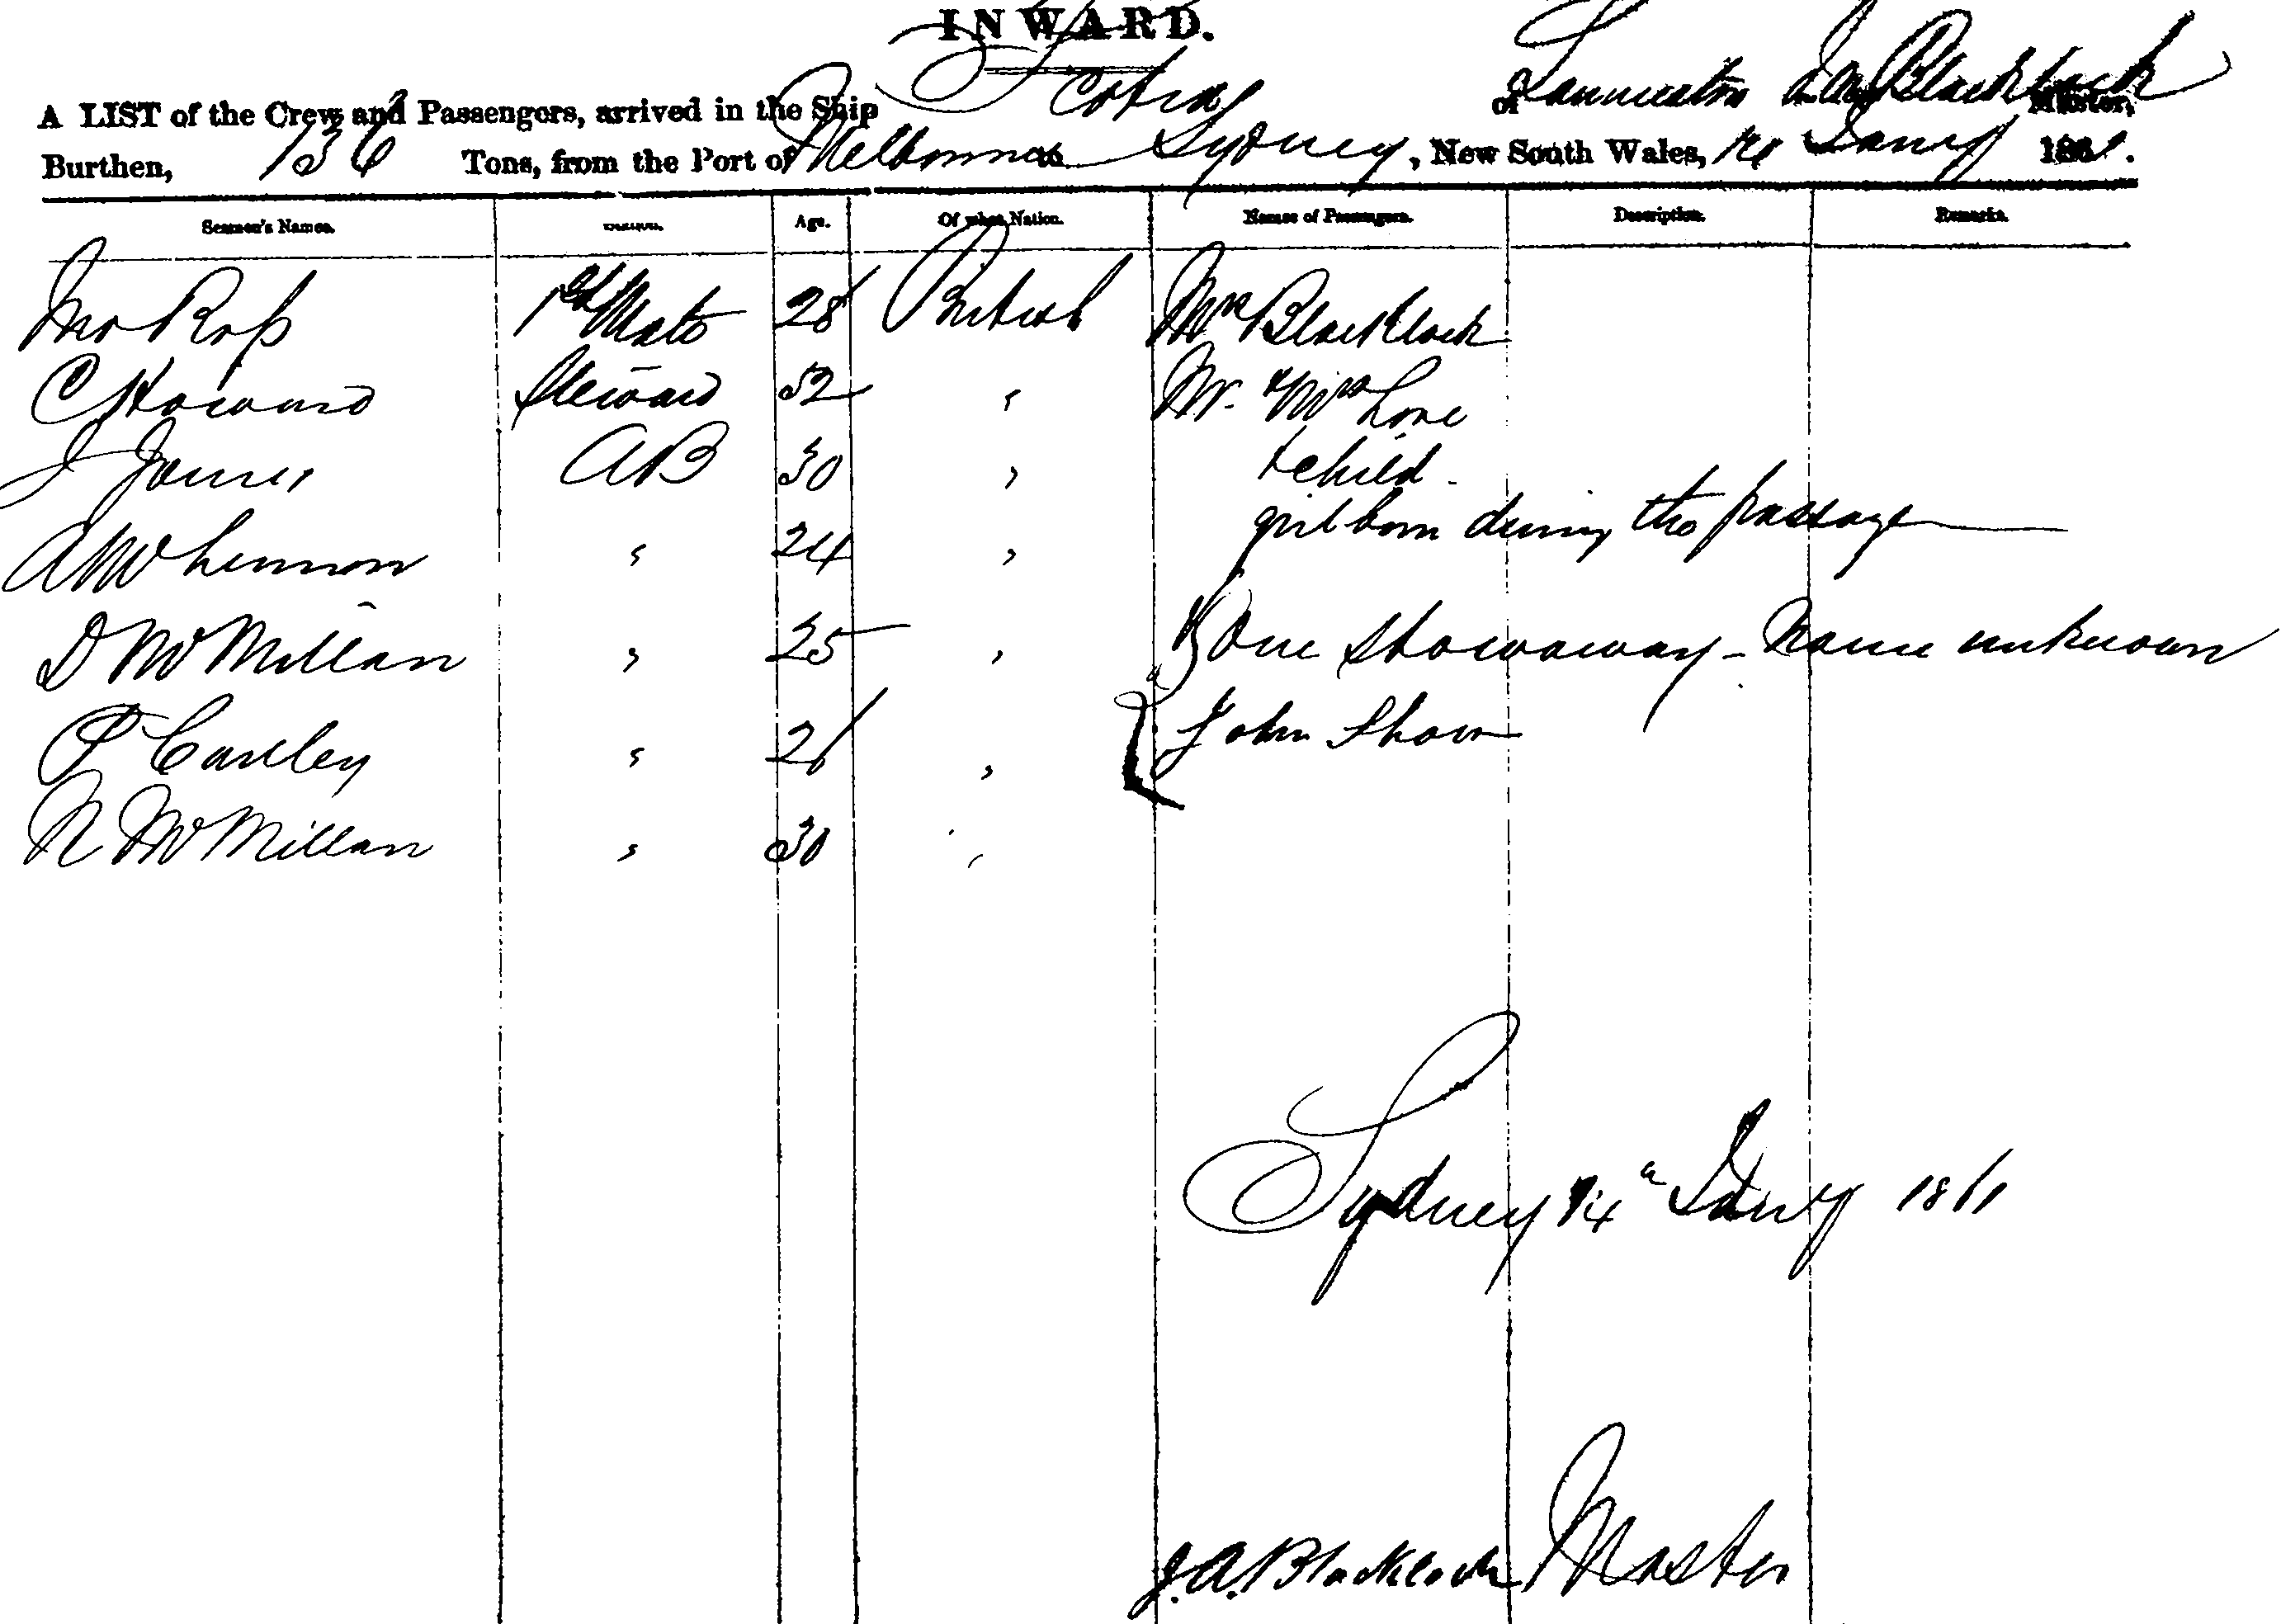 INWARD.
A LIST of the Crew and Passengers, arrived in the Ship Cobra of Launceston Jas Blacklock Master,
Burthen, 136 Tons, from the Port of Melbourne to Sydney, New South Wales, 14 Jany 1861.
Seamen's Names. Station. Age. Of what Nation. Names of Passengers. Description. Remarks.
Jno Roſs 1st Mate 28 British Mrs Blacklock
C Howard Steward 32 " Mr. & Mrs Love
J Jones AB 30 " & child -
A Mc Lennon " 24 " girl born during the passage
D Mc Millan " 25 " One Stowaway - Name unknown
P Carley " 26 " John Shaw
N Mc Millan " 30 "
Sydney 14th Jany 1861
J. A. Blacklock Master